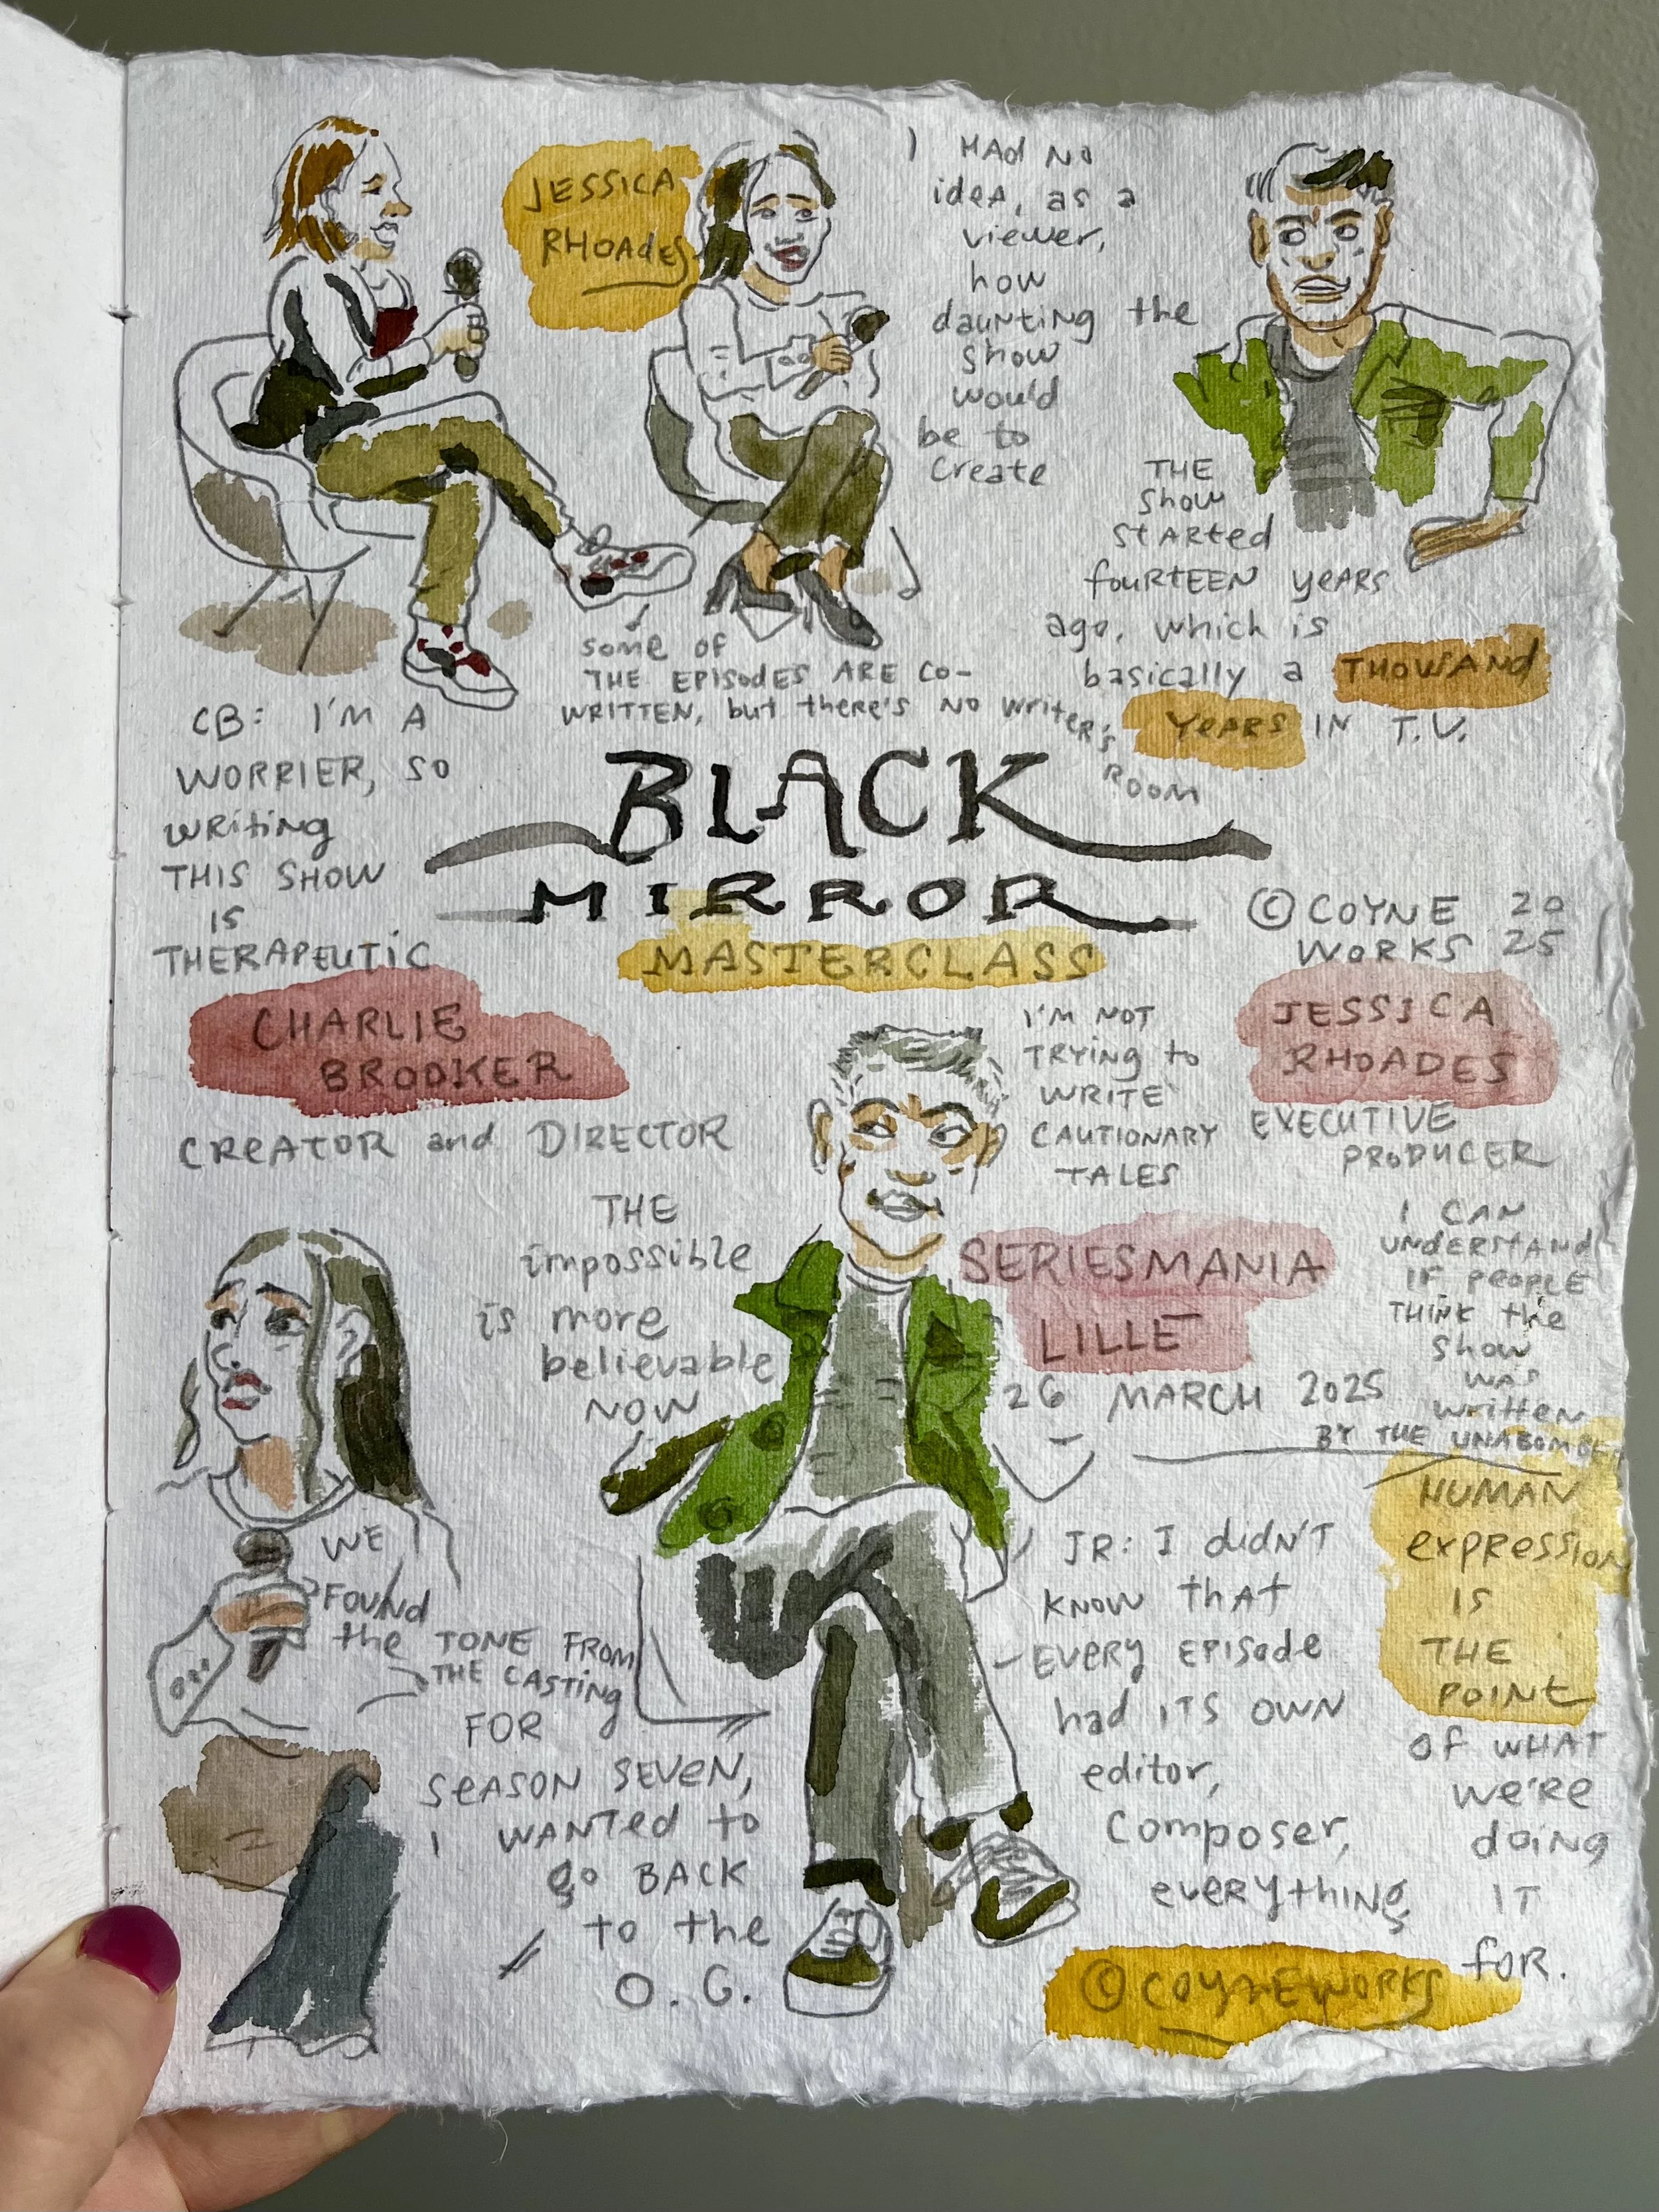 JESSICA
RHOADES
I HAD NO
IDEA, as a
viewer,
how
daunting the
show
would
be to
create
THE
show
STARTED
FOURTEEN YEARS
ago, which is
basically a THOUSAND
YEARS IN T.V.
some of
THE EPISODES ARE CO-
WRITTEN, but there's NO WRITER'S
ROOM
CB: I'M A
WORRIER, SO
WRITING
THIS SHOW
IS
THERAPEUTIC
BLACK
MIRROR
MASTERCLASS
© COYNE 20
WORKS 25
CHARLIE
BROOKER
CREATOR and DIRECTOR
I'M NOT
TRYING to
WRITE
CAUTIONARY
TALES
JESSICA
RHOADES
EXECUTIVE
PRODUCER
THE
impossible
is more
believable
NOW
SERIESMANIA
LILLE
26 MARCH 2025
I CAN
UNDERSTAND
IF PEOPLE
THINK the
show
WAS
written
BY THE UNABOMBER
WE
FOUND
the TONE FROM
THE CASTING
FOR
SEASON SEVEN,
I WANTED to
go BACK
to the
O.G.
JR: I didN'T
KNOW THAT
EVERY EPISODE
had ITS OWN
editor,
composer,
everything
HUMAN
expression
IS
THE
POINT
OF WHAT
we're
doing
IT
for.
© COYNEWORKS